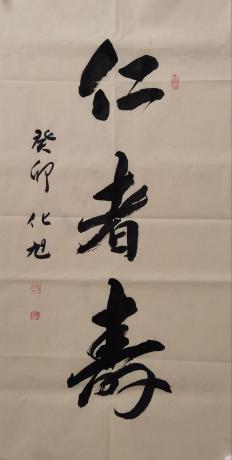 仁者寿
癸卯化旭